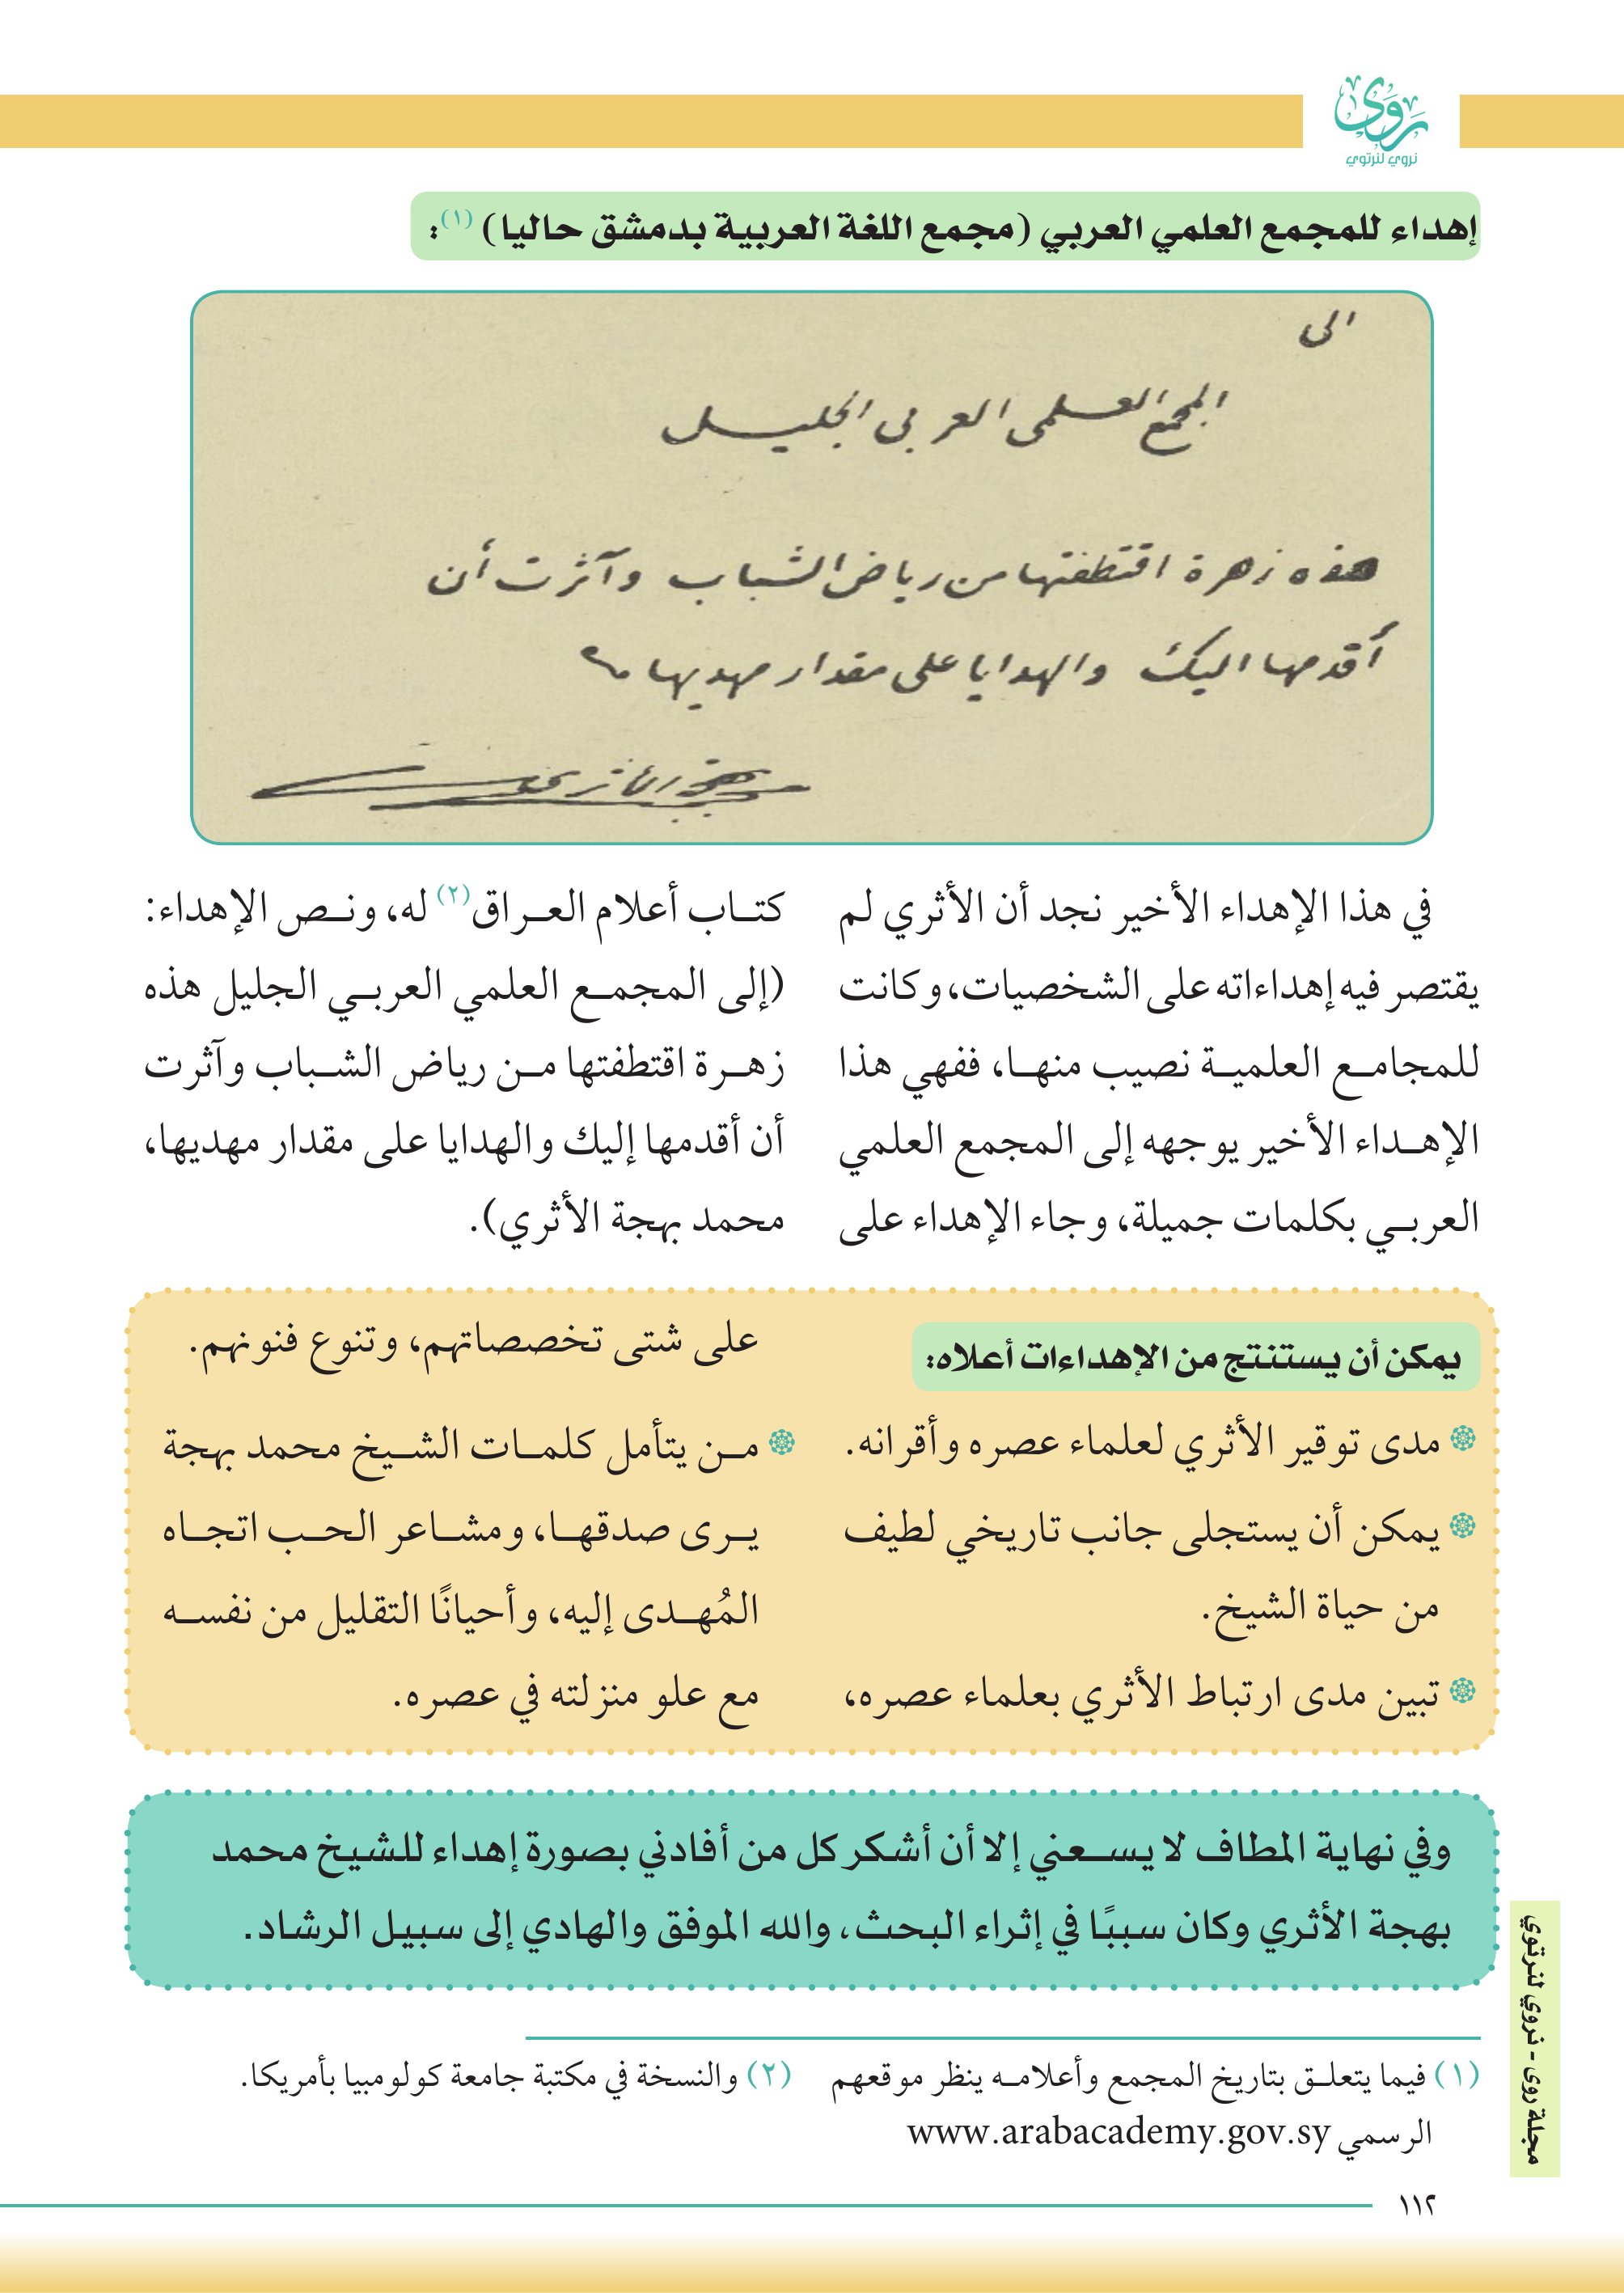 روى
نروي لنرتوي
إهداء للمجمع العلمي العربي (مجمع اللغة العربية بدمشق حاليا) (١):
الى
المجمع العلمي العربي الجليل
هذه زهرة اقتطفتها من رياض الشباب وآثرت أن
أقدمها اليك والهدايا على مقدار مهديها
بهجة الأثري
في هذا الإهداء الأخير نجد أن الأثري لم
يقتصر فيه إهداءاته على الشخصيات، وكانت
للمجامع العلمية نصيب منها، ففهي هذا
الإهداء الأخير يوجهه إلى المجمع العلمي
العربي بكلمات جميلة، وجاء الإهداء على
كتاب أعلام العراق(٢) له، ونص الإهداء:
(إلى المجمع العلمي العربي الجليل هذه
زهرة اقتطفتها من رياض الشباب وآثرت
أن أقدمها إليك والهدايا على مقدار مهديها،
محمد بهجة الأثري).
يمكن أن يستنتج من الإهداءات أعلاه:
مدى توقير الأثري لعلماء عصره وأقرانه.
يمكن أن يستجلى جانب تاريخي لطيف
من حياة الشيخ.
تبين مدى ارتباط الأثري بعلماء عصره،
على شتى تخصصاتهم، وتنوع فنونهم.
من يتأمل كلمات الشيخ محمد بهجة
يرى صدقها، ومشاعر الحب اتجاه
المُهدى إليه، وأحيانًا التقليل من نفسه
مع علو منزلته في عصره.
وفي نهاية المطاف لا يسعني إلا أن أشكر كل من أفادني بصورة إهداء للشيخ محمد
بهجة الأثري وكان سببًا في إثراء البحث، والله الموفق والهادي إلى سبيل الرشاد.
(١) فيما يتعلق بتاريخ المجمع وأعلامه ينظر موقعهم
الرسمي www.arabacademy.gov.sy
(٢) والنسخة في مكتبة جامعة كولومبيا بأمريكا.
مجلة روى - نروي لنرتوي
١١٢